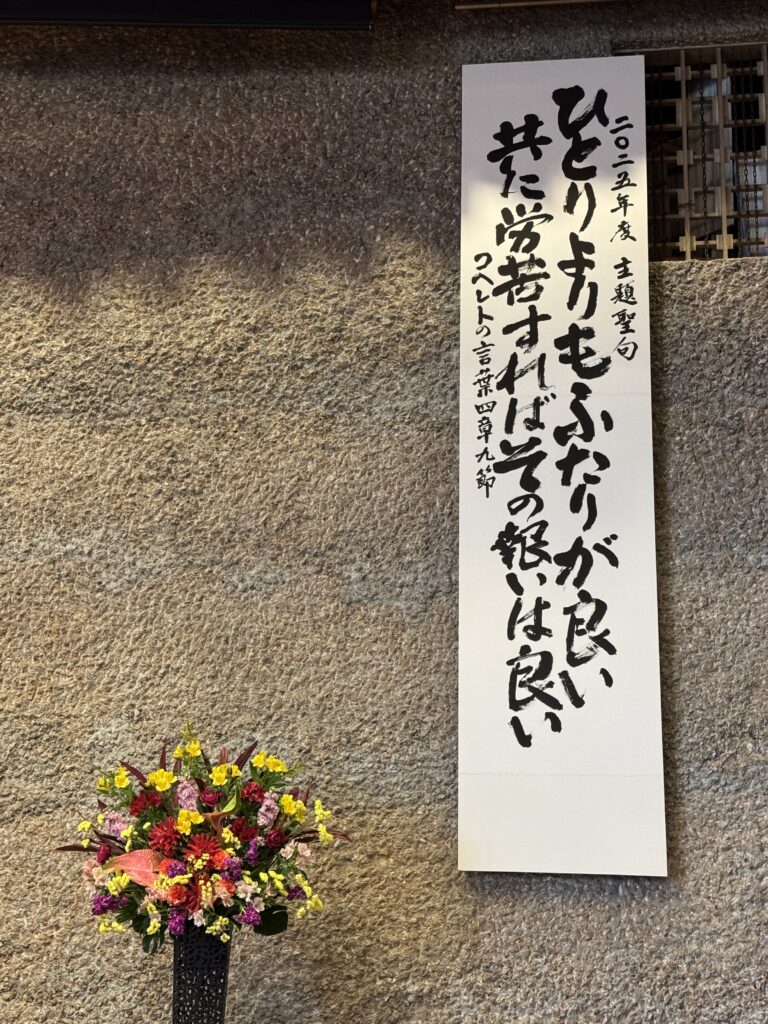 二〇二五年度 主題聖句
ひとりよりもふたりが良い
共に労苦すればその報いは良い
コヘレトの言葉四章九節